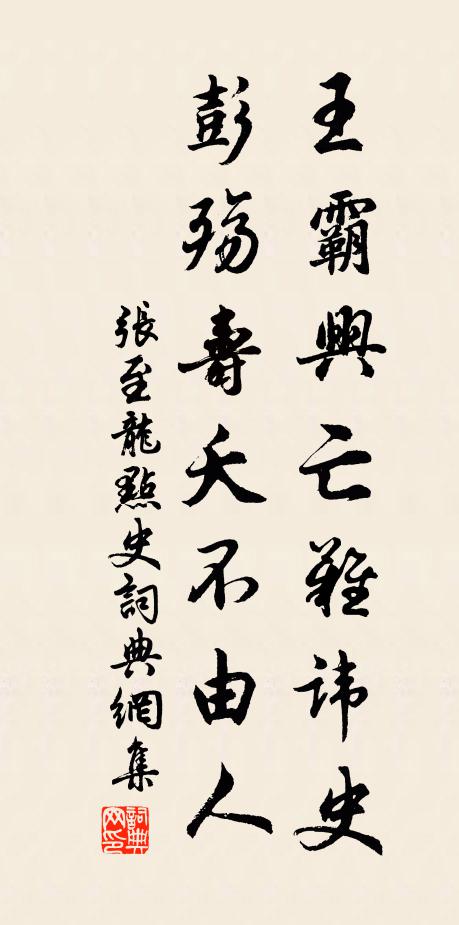 王霸興亡難諱史
彭殤壽夭不由人
張至龍點史詞典網集
詞典網印